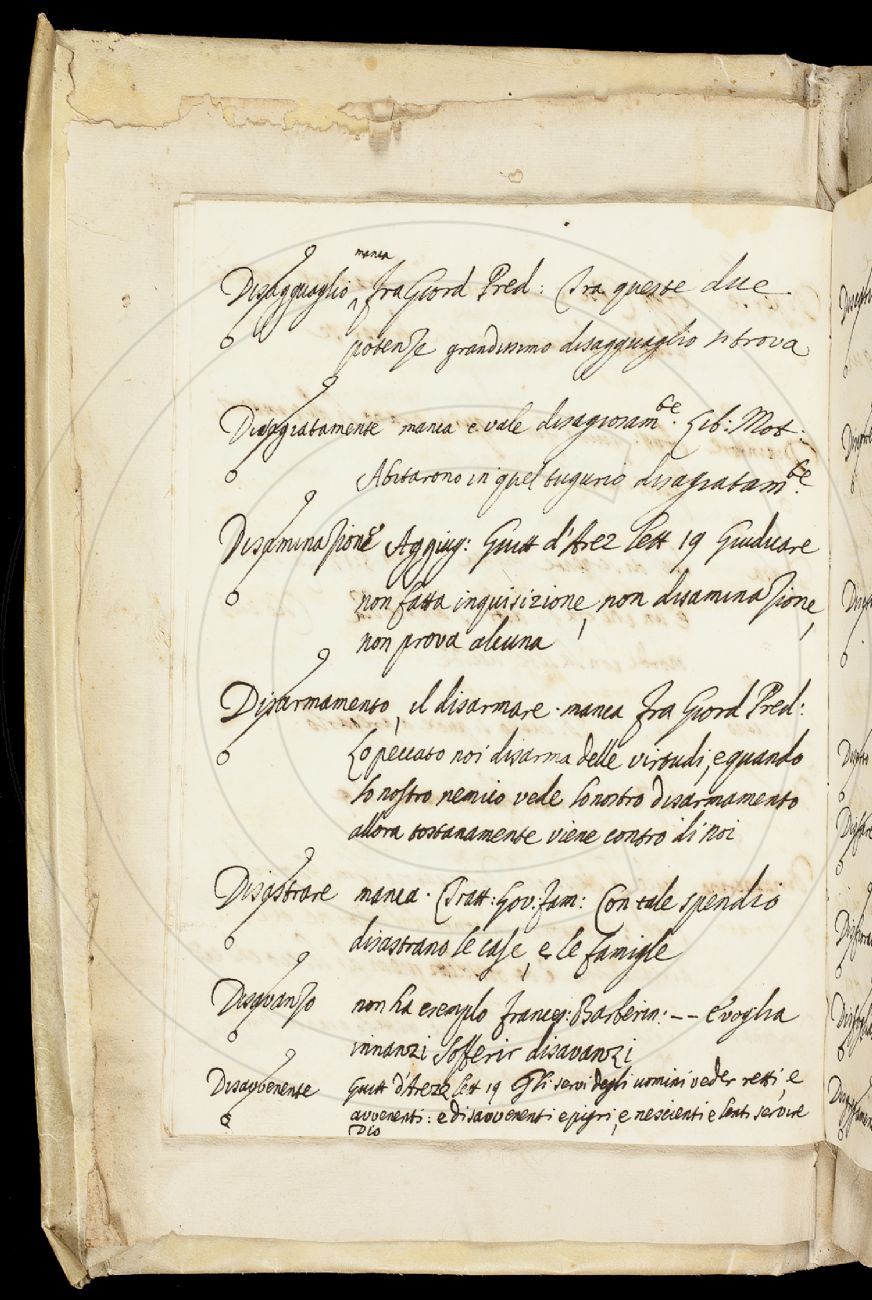 manca
Disagguaglio fra Giord Pred: Tra queste due
potenze grandissimo disagguaglio si trova
Disagiatamente manca e vale disagiosam.te Lib: Mot:
Abitarono in quel tugurio disagiatam.te
Disaminazione Aggiug: Guitt d'Arez lett 19 Giudicare
non fatta inquisizione, non disaminazione,
non prova alcuna
Disarmamento, il disarmare · manca fra Giord Pred:
Lo peccato noi disarma delle virtudi, e quando
lo nostro nemico vede lo nostro disarmamento
allora tostanamente viene contro di noi
Disastrare manca · Tratt: Gov: fam: Con tale spendio
disastrano le case, e le famigle
Disavanzo non ha esemplo francesc: Barberin: -- E' voglia
innanzi Sofferir disavanzi
Disavvenente Guitt d'Arezz lett 19 Gli servi degli uomini veder retti, e
avvenenti: e disavvenenti e pigri, e nescienti e lenti servire
Dio